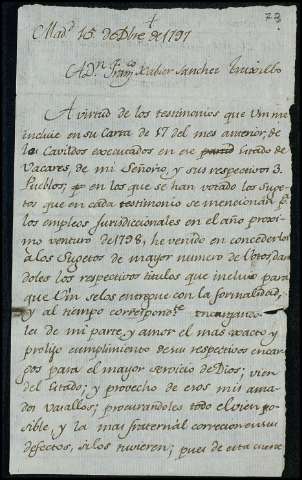 73
Mad.d 15 de Dbre de 1797
A Dn Fran.co Xabier Sanchez Truxillo
A virtud de los testimonios que Vm me
incluie en su Carta de 17 del mes anterior, de
los Cavildos executados en ese partid Estado de
Vacares, de mi Señorio, y sus respectivos 3.
Pueblos, en los que se han votado los Suge-
tos que en cada testimonio se mencionan pa
los empleos Jurisdiccionales en el año proxi-
mo venturo de 1798, he venido en concederlos
a los Sugetos de mayor numero de votos, dan
doles los respectivos titulos que incluio para
que Vm se los entregue con la formalidad,
y al tiempo correspond.te encargando
les de mi parte, y amor el mas exacto y
prolijo cumplimiento de sus respectivos encar-
gos para el mayor servicio de Dios; vien
del Estado; y provecho de esos mis ama-
dos vasallos; procurandoles todo el vien po-
sible, y la mas fraternal correccion en sus
defectos, si los tuvieren; pues de esta suerte